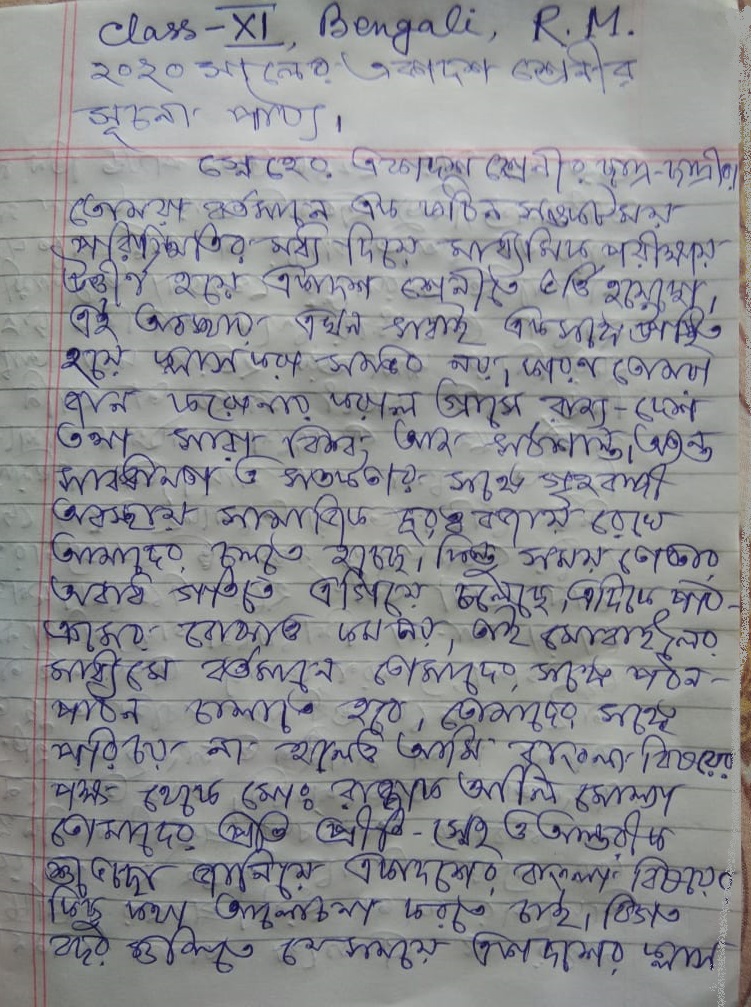 Class-XI, Bengali, R.M.
২০২০ সালের একাদশ শ্রেনীর
সূচনা পাঠ্য।
স্নেহের একাদশ শ্রেনীর ছাত্র-ছাত্রীরা
তোমরা বর্তমানে এক কঠিন সঙ্কটময়
পরিস্থিতির মধ্য দিয়ে মাধ্যমিক পরীক্ষায়
উত্তীর্ণ হয়ে একাদশ শ্রেনীতে ভর্তি হয়েছো,
এই অবস্থায় এখন সবাই একসঙ্গে উপস্থিত
হয়ে ক্লাস করা সম্ভব নয়, কারণ তোমরা
জান করোনার করাল গ্রাসে রাজ্য-দেশ
তথা সারা বিশ্ব আজ
সাবধানতা ও সতর্কতার সঙ্গে গৃহবন্দী
অবস্থায় সামাজিক দূরত্ব বজায় রেখে
আমাদের চলতে হচ্ছে। কিন্তু সময় তো তার
অবাধ গতিতে এগিয়ে চলেছে, এদিকে পাঠ-
ক্রমের বোঝাও কম নয়, তাই মোবাইলের
মাধ্যমে বর্তমানে তোমাদের সঙ্গে পঠন-
পাঠন চালাতে হবে, তোমাদের সঙ্গে
পরিচয় না হলেও আমি বাংলা বিষয়ের
পক্ষ থেকে মোঃ রাজ্জাক আলি মোল্লা
তোমাদের প্রতি প্রীতি-স্নেহ ও আন্তরিক
শুভেচ্ছা জানিয়ে একাদশের বাংলা বিষয়ের
কিছু কথা আলোচনা করতে চাই, বিগত
বছর গুলিতে যে সময়ে একাদশের ক্লাস